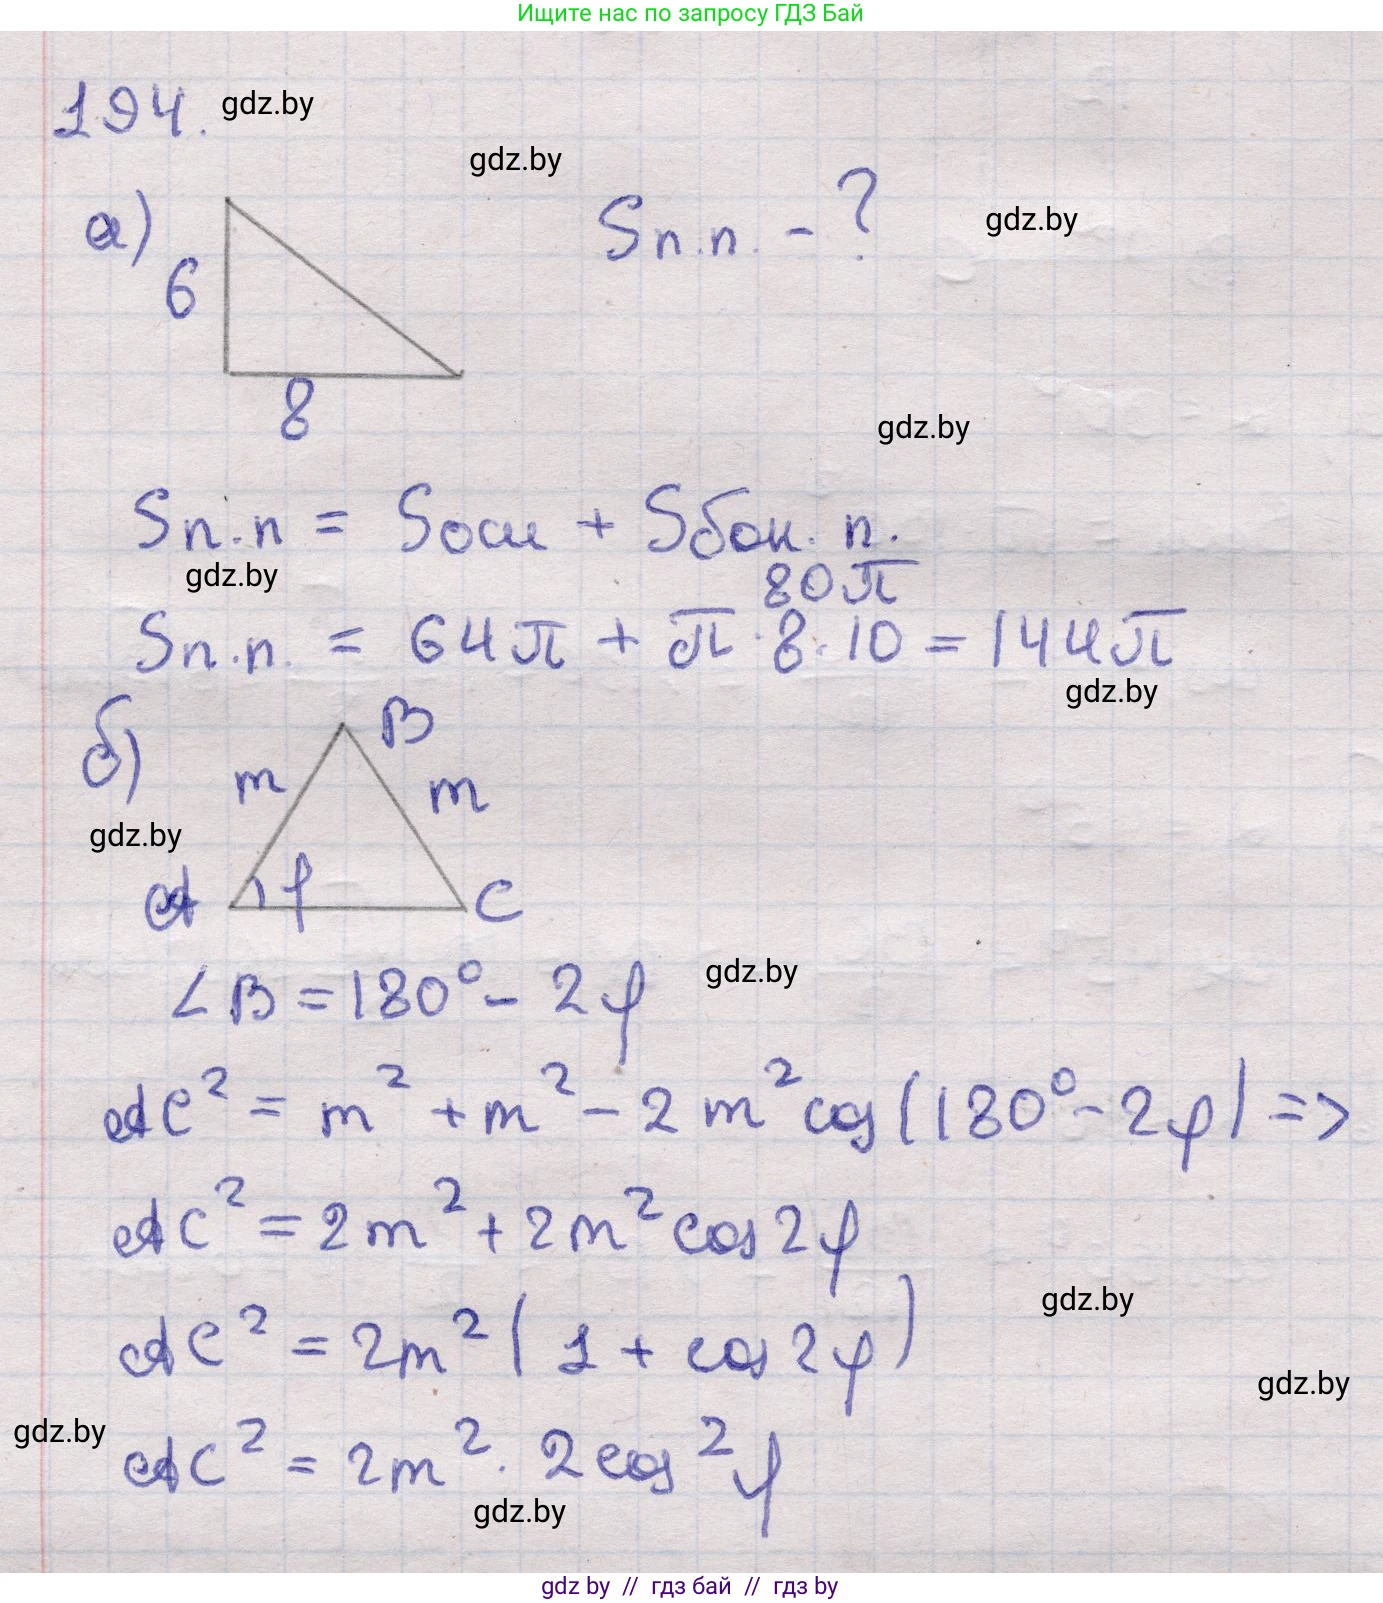 Ищите нас по запросу ГДЗ Бай
194. gdz.by
gdz.by
а) Sп.п. - ? gdz.by
6
8
gdz.by
Sп.п = Sосн + Sбок. п.
gdz.by 80π
Sп.п. = 64π + π · 8 · 10 = 144π
gdz.by
б) B
m m
gdz.by
A φ C
∠B = 180° - 2φ gdz.by
AC² = m² + m² - 2m² cos(180° - 2φ) =>
AC² = 2m² + 2m² cos 2φ
gdz.by
AC² = 2m² (1 + cos 2φ)
gdz.by
gdz.by
AC² = 2m² · 2cos² φ
gdz.by
gdz by // гдз бай // гдз by